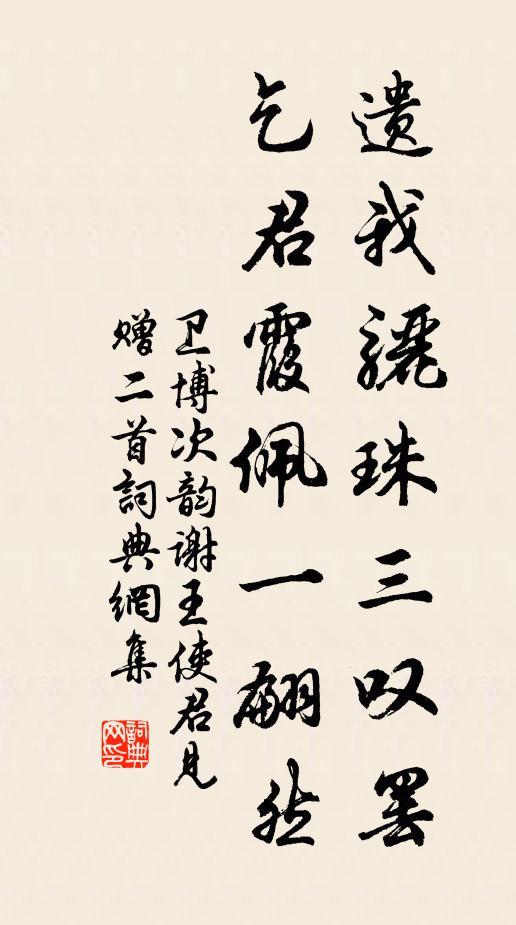 遗我骊珠三叹罢
乞君霞佩一翩然
卫博次韵谢王使君见
赠二首詞典網集
詞典网印